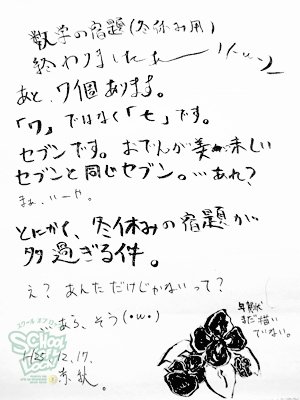 数学の宿題(冬休み用)
終わりましたぁ
あと、7個あります。
「ワ」ではなく「七」です。
セブンです。おでんが美味しい
セブンと同じセブン。…あれ?
まぁ、いーや。
とにかく、冬休みの宿題が
多過ぎる件。
え?あんただけじゃないって?
…あら、そう(・ω・)
年賀状
まだ描い
ていない。
H25.12.17.
スクール・オブ・ロック!
SCHOOL
OF LOCK!